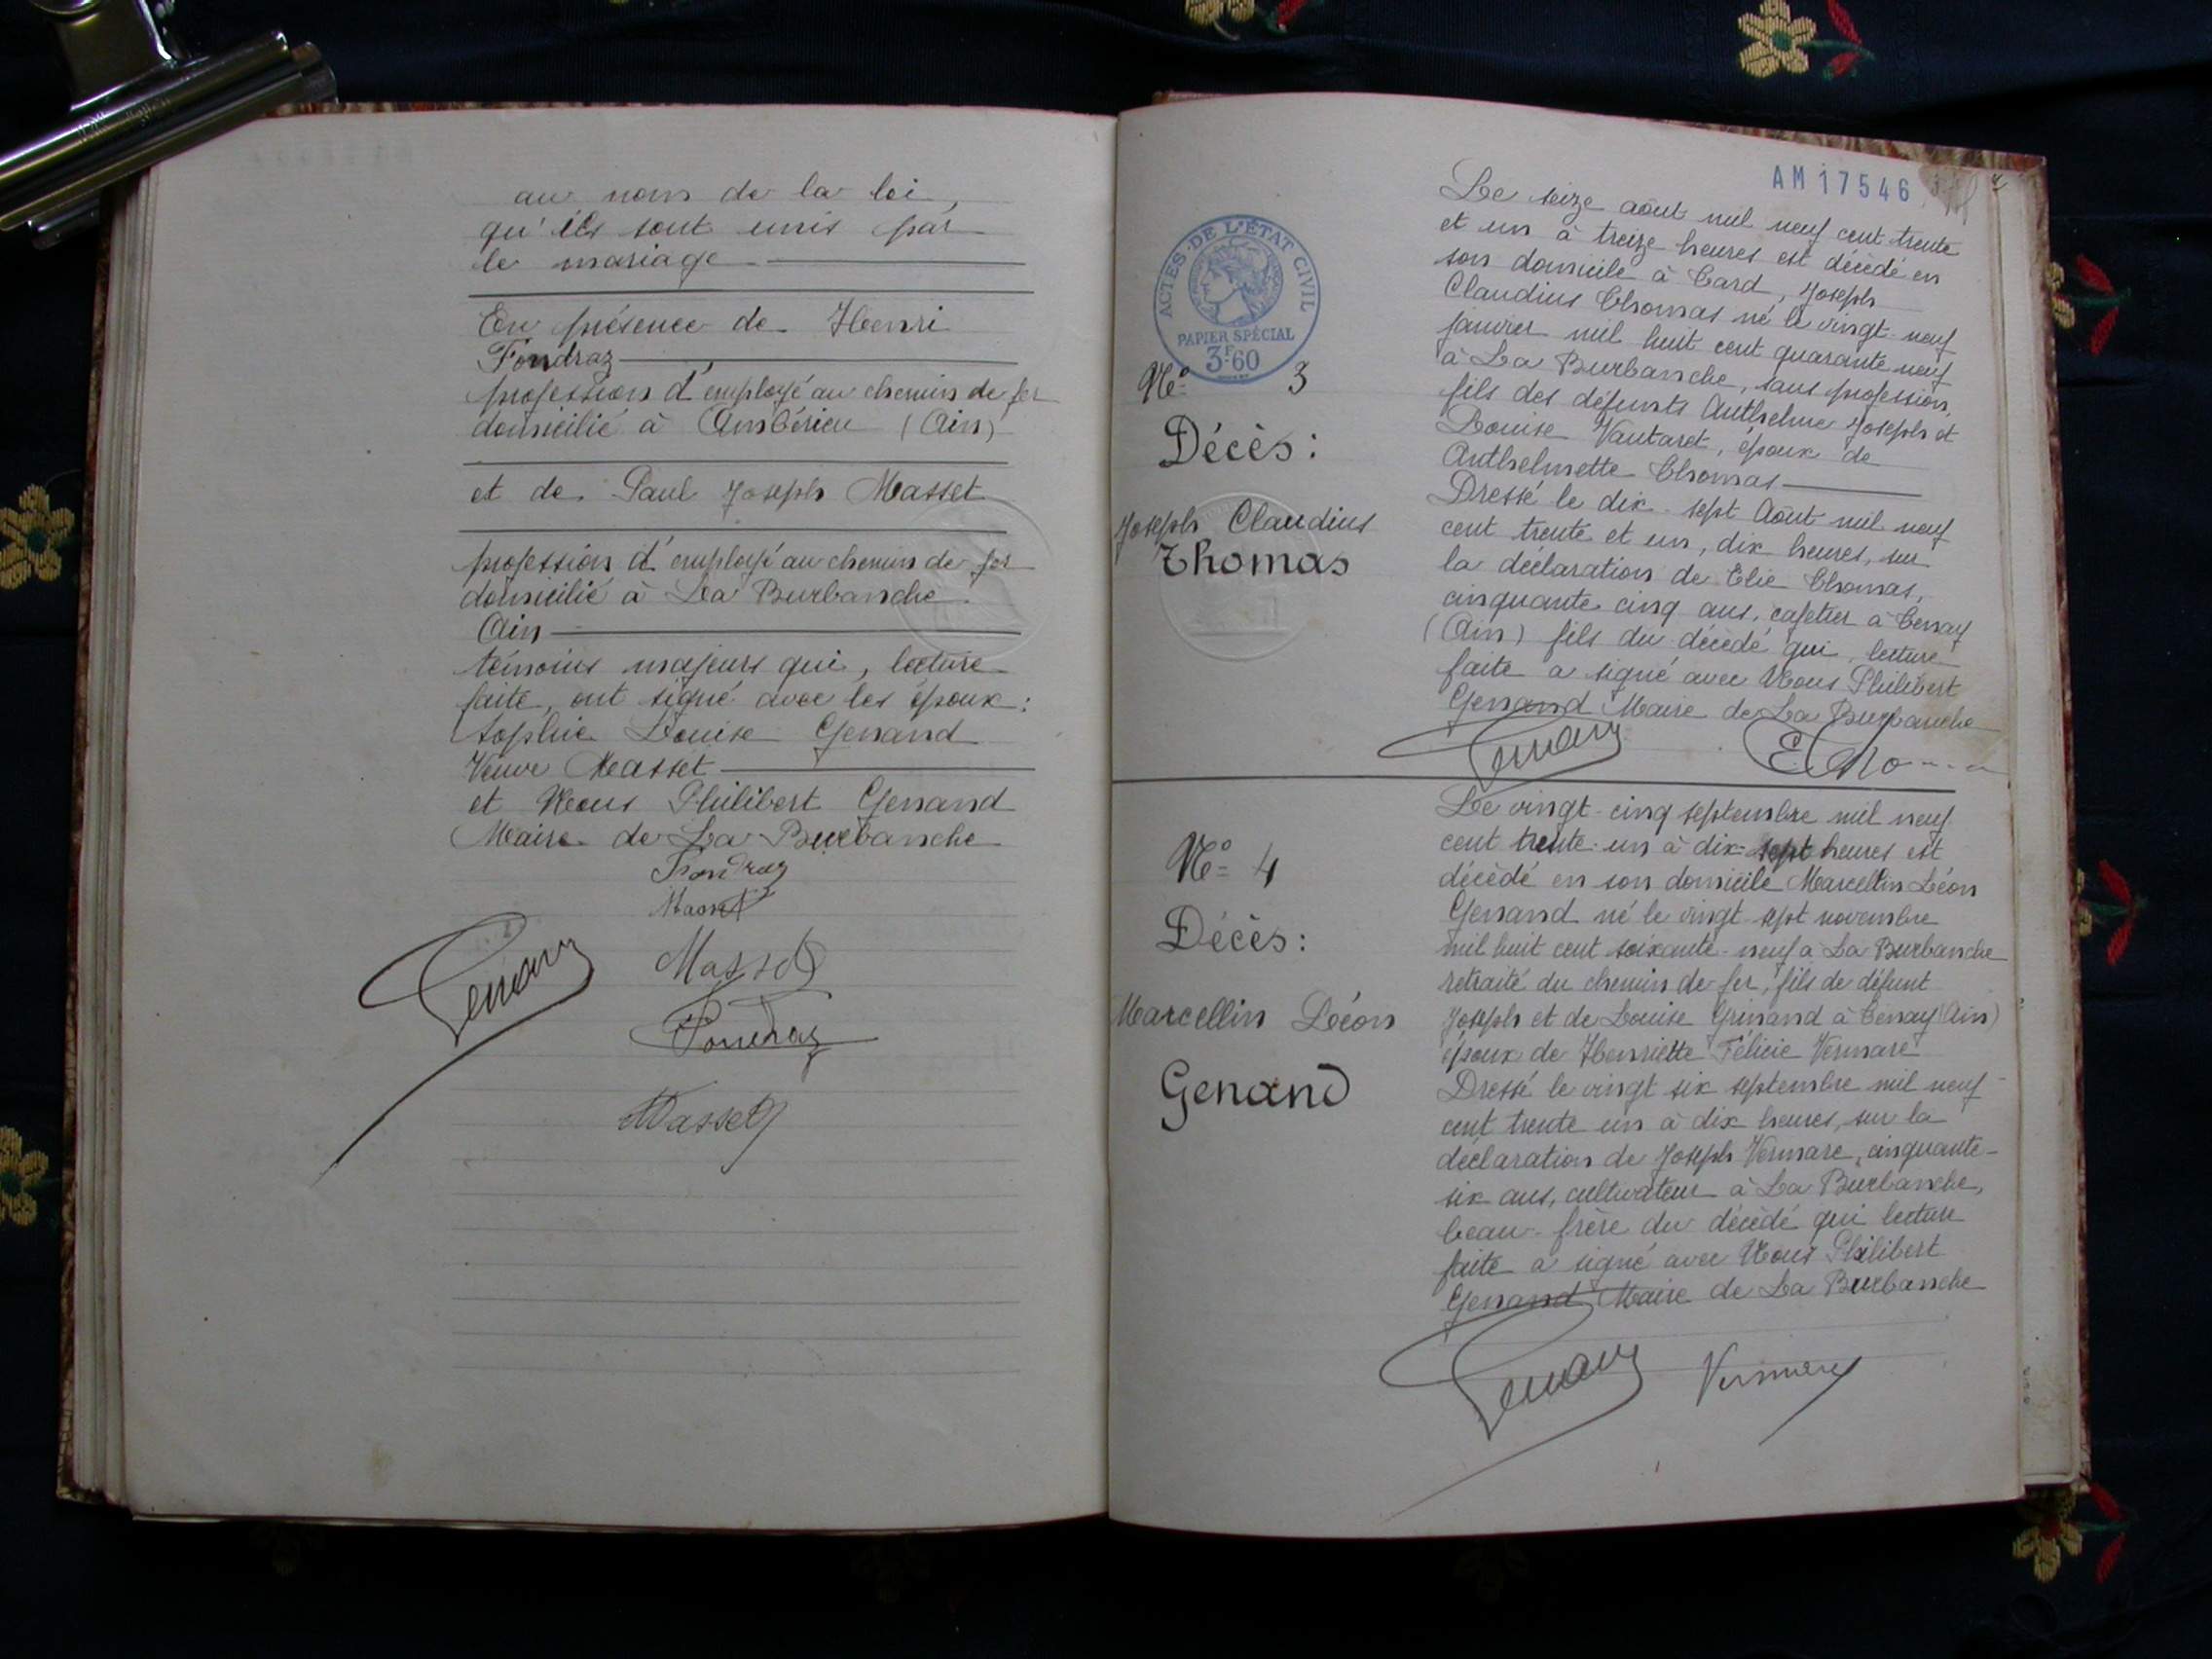 au nom de la loi,
qu'ils sont unis par
le mariage
En présence de Henri
Fondraz
profession d'employé au chemin de fer
domicilié à Ambérieu (Ain)
et de Paul Joseph Masset
profession d'employé au chemin de fer
domicilié à La Burbanche
Ain
témoins majeurs qui, lecture
faite, ont signé avec les époux:
Sophie Louise Genand
Veuve Masset
et Nous Philibert Genand
Maire de La Burbanche
Fondraz
Masset
Genand
Masset
Fondraz
Masset
AM 17546
ACTES DE L'ÉTAT CIVIL
PAPIER SPÉCIAL
3F.60
No 3
Décès:
Joseph Claudius
Thomas
Le seize août mil neuf cent trente
et un à treize heures est décédé en
son domicile à Tard, Joseph
Claudius Thomas né le vingt-neuf
janvier mil huit cent quarante neuf
à La Burbanche, sans profession,
fils des défunts Anthelme Joseph et
Louise Vautaret, époux de
Anthelmette Thomas
Dressé le dix-sept Août mil neuf
cent trente et un, dix heures, sur
la déclaration de Elie Thomas,
cinquante cinq ans, cafetier à Tenay
(Ain) fils du décédé qui, lecture
faite a signé avec Nous Philibert
Genand Maire de La Burbanche
Genand
E Tho
No 4
Décès:
Marcellin Léon
Genand
Le vingt-cinq septembre mil neuf
cent trente-un à dix-sept heures est
décédé en son domicile Marcellin Léon
Genand né le vingt-sept novembre
mil huit cent soixante-neuf à La Burbanche
retraité du chemin de fer, fils de défunt
Joseph et de Louise Grinand à Tenay (Ain)
époux de Henriette Félicie Vermare
Dressé le vingt six septembre mil neuf
cent trente un à dix heures, sur la
déclaration de Joseph Vermare, cinquante-
six ans, cultivateur à La Burbanche,
beau-frère du décédé qui lecture
faite a signé avec Nous Philibert
Genand Maire de La Burbanche
Genand
Vermare